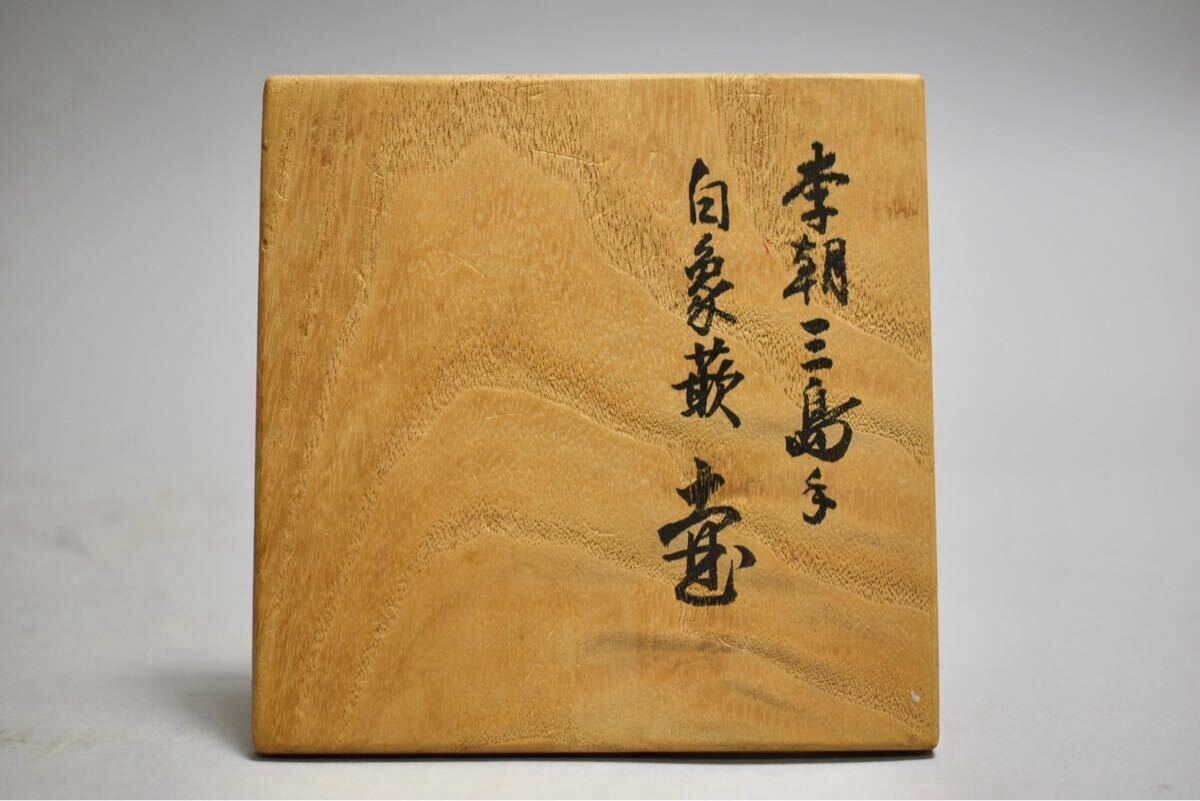 李朝三島手
白象嵌壷